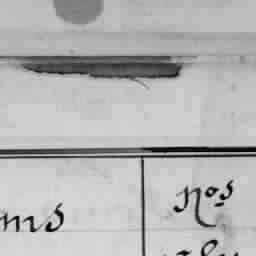 ms
Nos